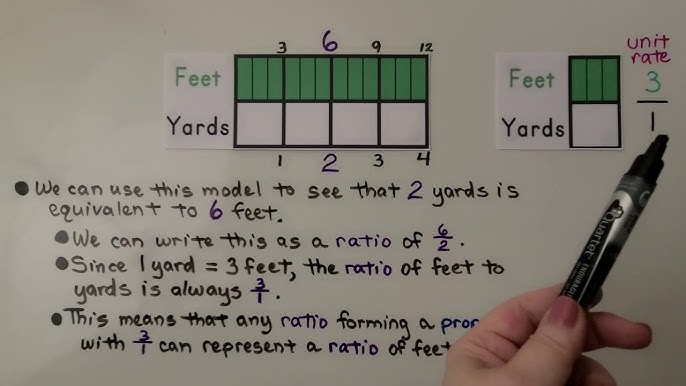 3 6 9 12
Feet
Yards
1 2 3 4
unit
rate
Feet
3
Yards
1
• We can use this model to see that 2 yards is
equivalent to 6 feet.
• We can write this as a ratio of 6/2.
• Since 1 yard = 3 feet, the ratio of feet to
yards is always 3/1.
• This means that any ratio forming a
with 3/1 can represent a ratio of feet
Quartet